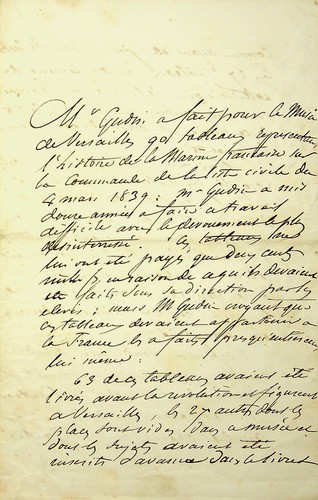 Mr Gudin a fait pour le Musée
de Versailles 90 tableaux représentant
l'histoire de la Marine française sur
la Commande de la liste civile du
4 mars 1839 : Mr Gudin a mis
douze années à faire ce travail
difficile avec le dévouement le plus
désintéressé. Ces tableaux
lui ont été payés que deux cents
en raison de a qu'ils devaient
être faits sous sa direction par des
élèves ; mais Mr Gudin croyant que
ces tableaux devaient appartenir à
la France les a faits presqu'entièrement
lui même :
63 de ces tableaux avaient été
livrés avant la révolution et figurent
à Versailles, les 27 autres dont les
places sont vides dans ce musée et
dont les sujets avaient été
inscrits d'avance dans le livret